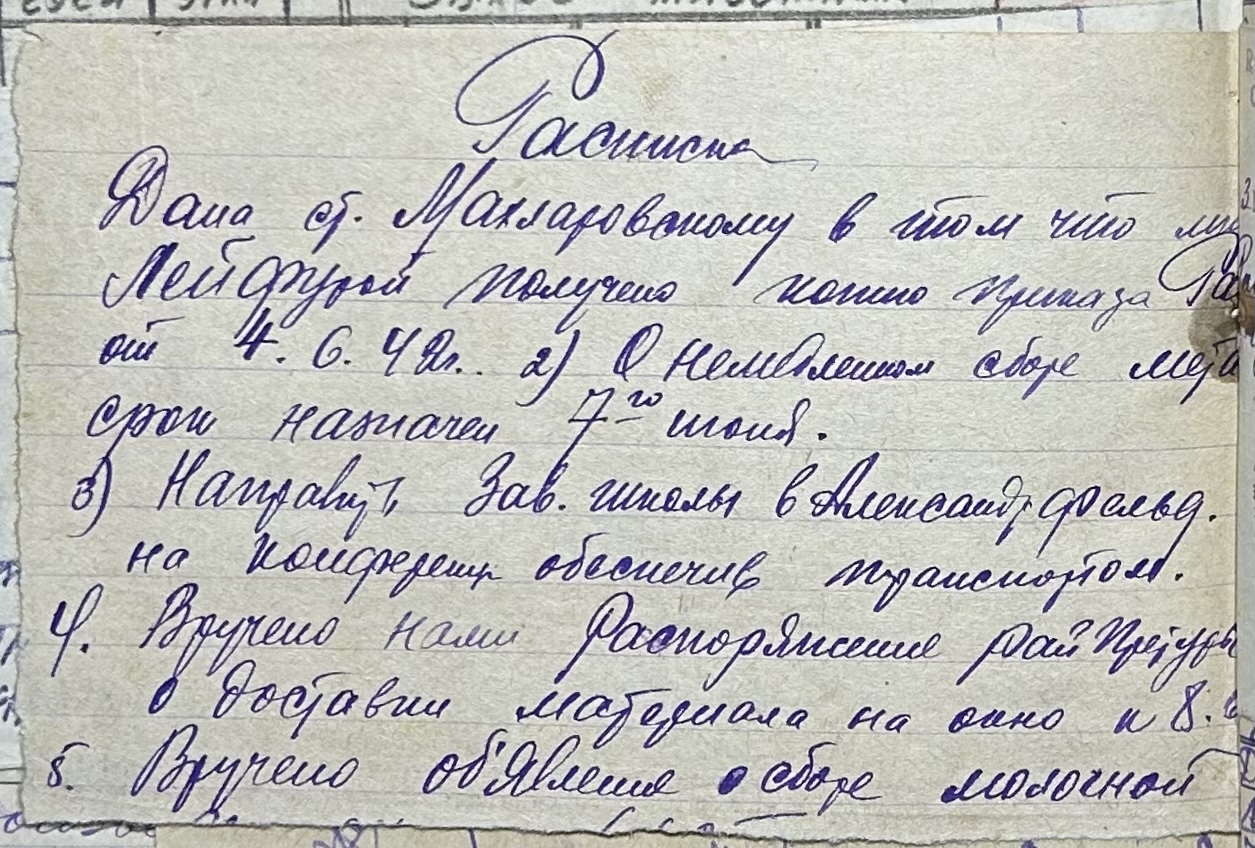 Расписка
Дана ст. Махларовскому в том что
Лейфурой получено копию приказа
от 4. 6. 42г.. 2) О немедленном сборе
срок назначен 7го июня.
3) Направить Зав. школы в Александрфельд.
на конференц обеспечив транспортом.
4. Вручено нами Распоряжение рай Претуры
о доставки материала на окно к 8.
5. Вручено об'явление о сборе молочной